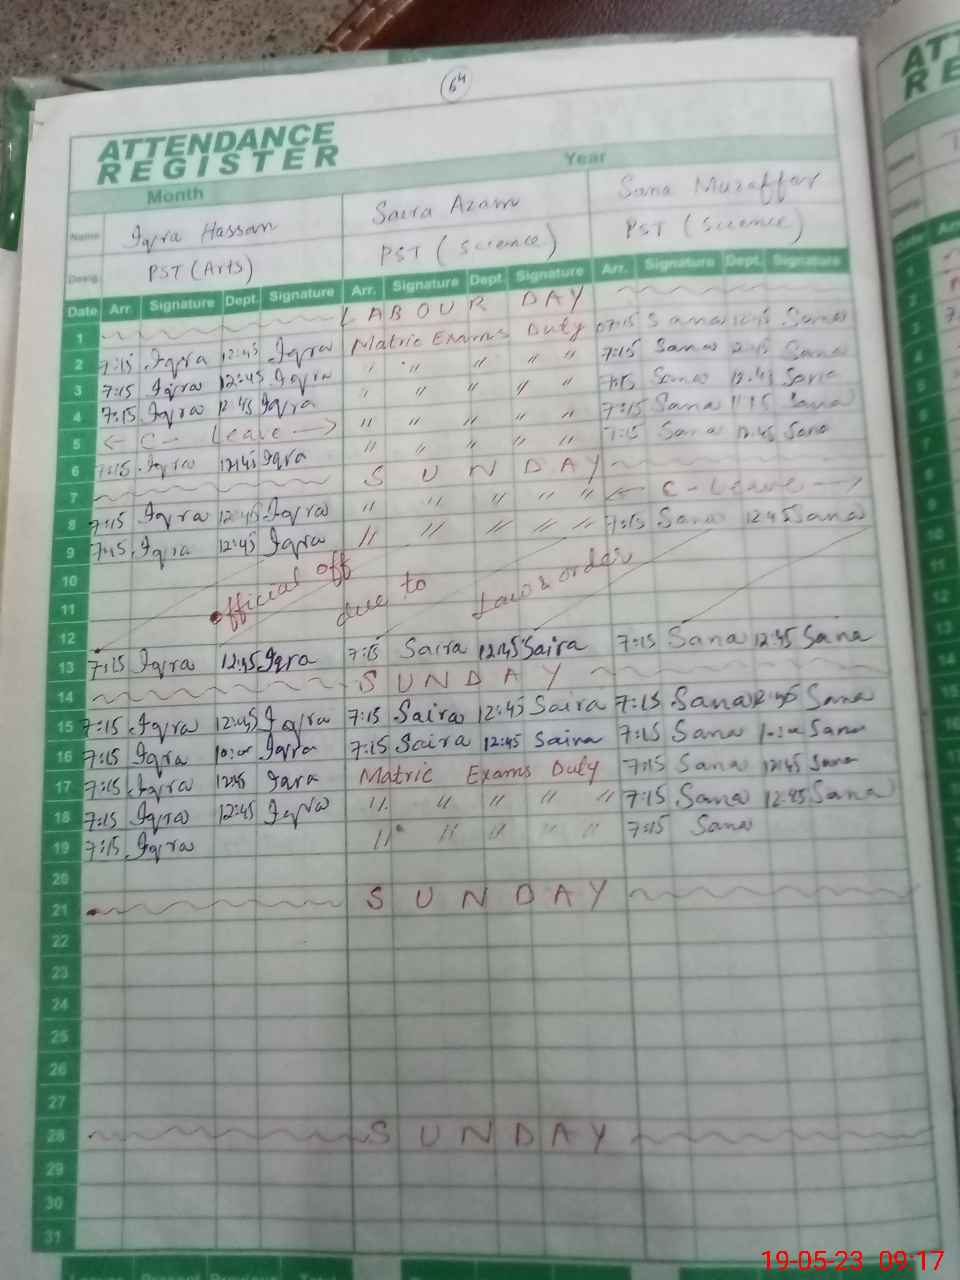 64
ATTENDANCE
REGISTER
Month Year
Name Iqra Hassan Saira Azam Sana Muzaffar
Desig. PST (Arts) PST (Science) PST (Science)
Date Arr. Signature Dept. Signature Arr. Signature Dept. Signature Arr. Signature Dept. Signature
1 LABOUR DAY
2 7:15 Iqra 12:45 Iqra Matric Exams Duty 07:15 Sana 12:45 Sana
3 7:15 Iqra 12:45 Iqra " " " " " 7:15 Sana 12:45 Sana
4 7:15 Iqra 12:45 Iqra " " " " " 7:15 Sana 12:45 Sana
5 ← C- Leave → " " " " " 7:15 Sana 11:15 Sana
6 7:15 Iqra 12:45 Iqra " " " " " 7:15 Sana 12:45 Sana
7 SUNDAY
8 7:15 Iqra 12:45 Iqra " " " " " ← C- Leave →
9 7:15 Iqra 12:45 Iqra " " " " " 7:15 Sana 12:45 Sana
10
11 official off due to Law & order
12
13 7:15 Iqra 12:45 Iqra 7:15 Saira 12:45 Saira 7:15 Sana 12:45 Sana
14 SUNDAY
15 7:15 Iqra 12:45 Iqra 7:15 Saira 12:45 Saira 7:15 Sana 12:45 Sana
16 7:15 Iqra 10:00 Iqra 7:15 Saira 12:45 Saira 7:15 Sana 10:00 Sana
17 7:15 Iqra 12:45 Iqra Matric Exams Duty 7:15 Sana 12:45 Sana
18 7:15 Iqra 12:45 Iqra " " " " " 7:15 Sana 12:45 Sana
19 7:15 Iqra " " " " " 7:15 Sana
20
21 SUNDAY
22
23
24
25
26
27
28 SUNDAY
29
30
31
19-05-23 09:17